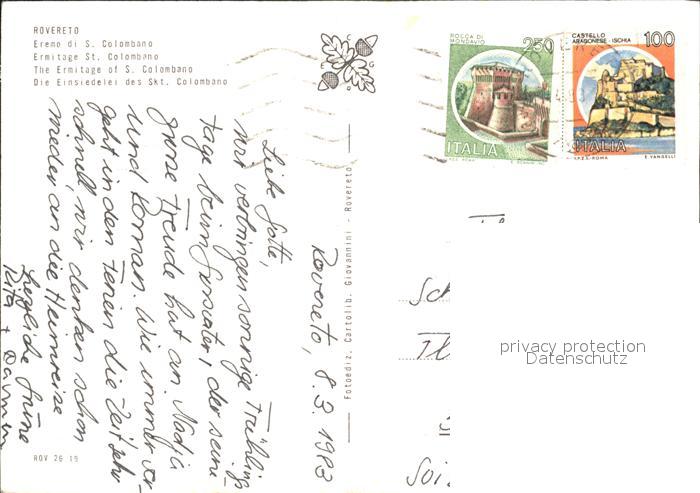 ROVERETO
Eremo di S. Colombano
Ermitage St. Colombano
The Ermitage of S. Colombano
Die Einsiedelei des Skt. Colombano
ROCCA DI MONDAVIO
250
ITALIA
CASTELLO ARAGONESE - ISCHIA
100
ITALIA
I.P.Z.S.-ROMA
E. VANGELLI
Fotoediz. Cartolib. Giovannini - Rovereto
Rovereto, 8.3.1983
Liebe Gotte,
wir verbringen sonnige Frühlings
tage beim, der seine
grosse Freude hat an Nadja
und Roman. Wie immer ver-
geht in den Ferien die Zeit sehr
schnell, wir denken schon
wieder an die Heimreise
herzliche Grüsse
Rita +
Sch
Soi
privacy protection
Datenschutz
ROV 26 19